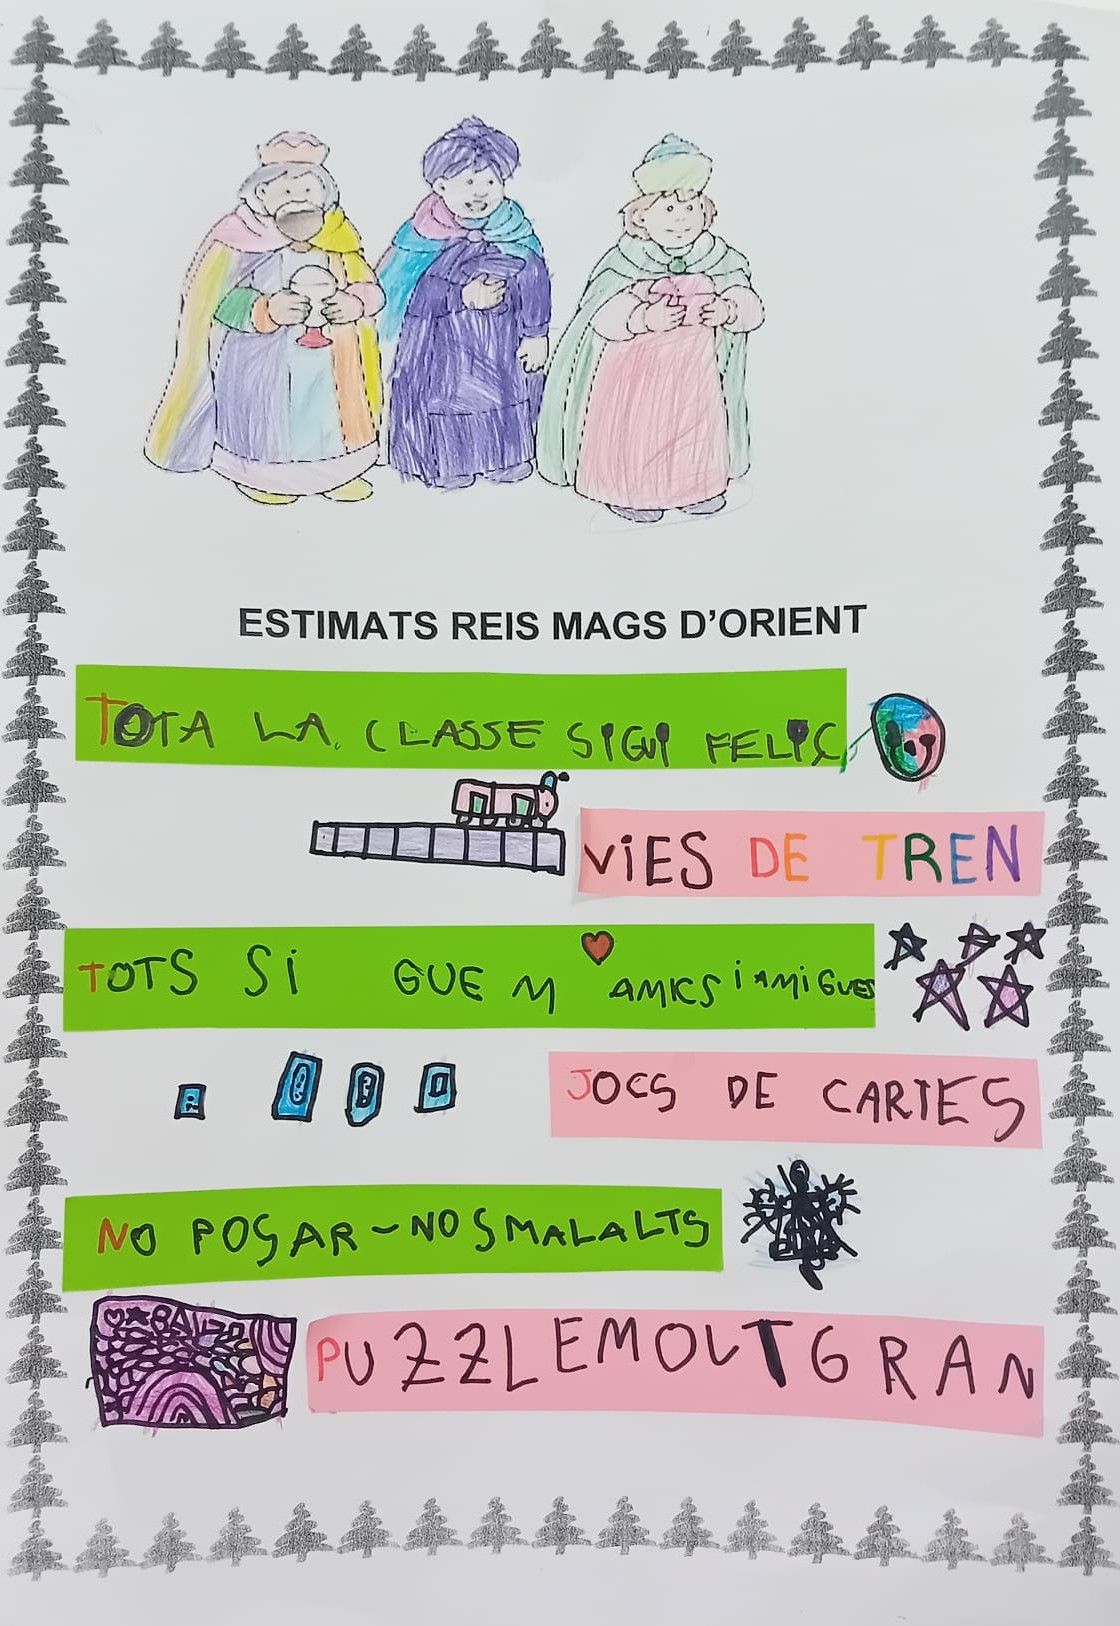 ESTIMATS REIS MAGS D'ORIENT
TOTA LA CLASSE SIGUI FELIÇ
ViES DE TREN
TOTS Si GUE M AMICS i AMiGUES
JOCS DE CARTES
NO POSAR-NOS MALALTS
PUZZLE MOLT GRAN